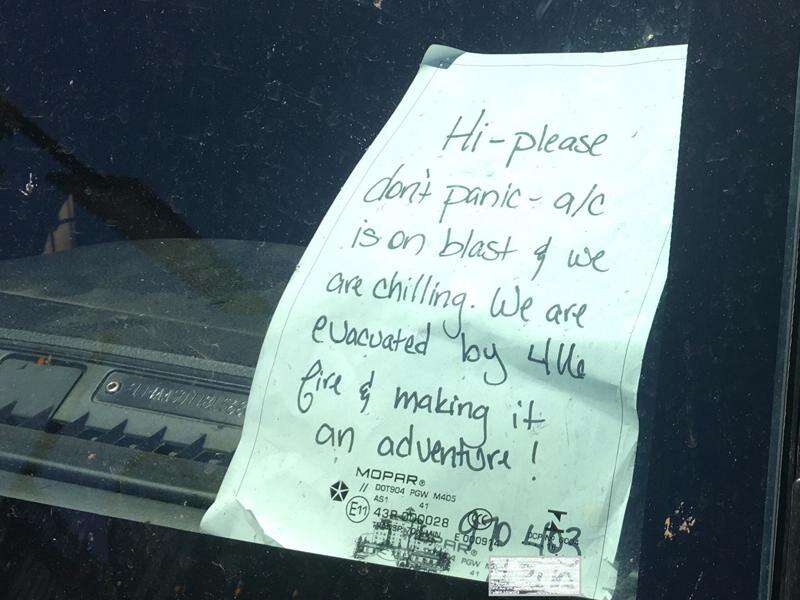 Hi-please
don't panic- a/c
is on blast & we
are chilling. We are
evacuated by 416
fire & making it
an adventure!
MOPAR®
// DOT904 PGW M405
AS1 41
E11 43R-000028
970 403